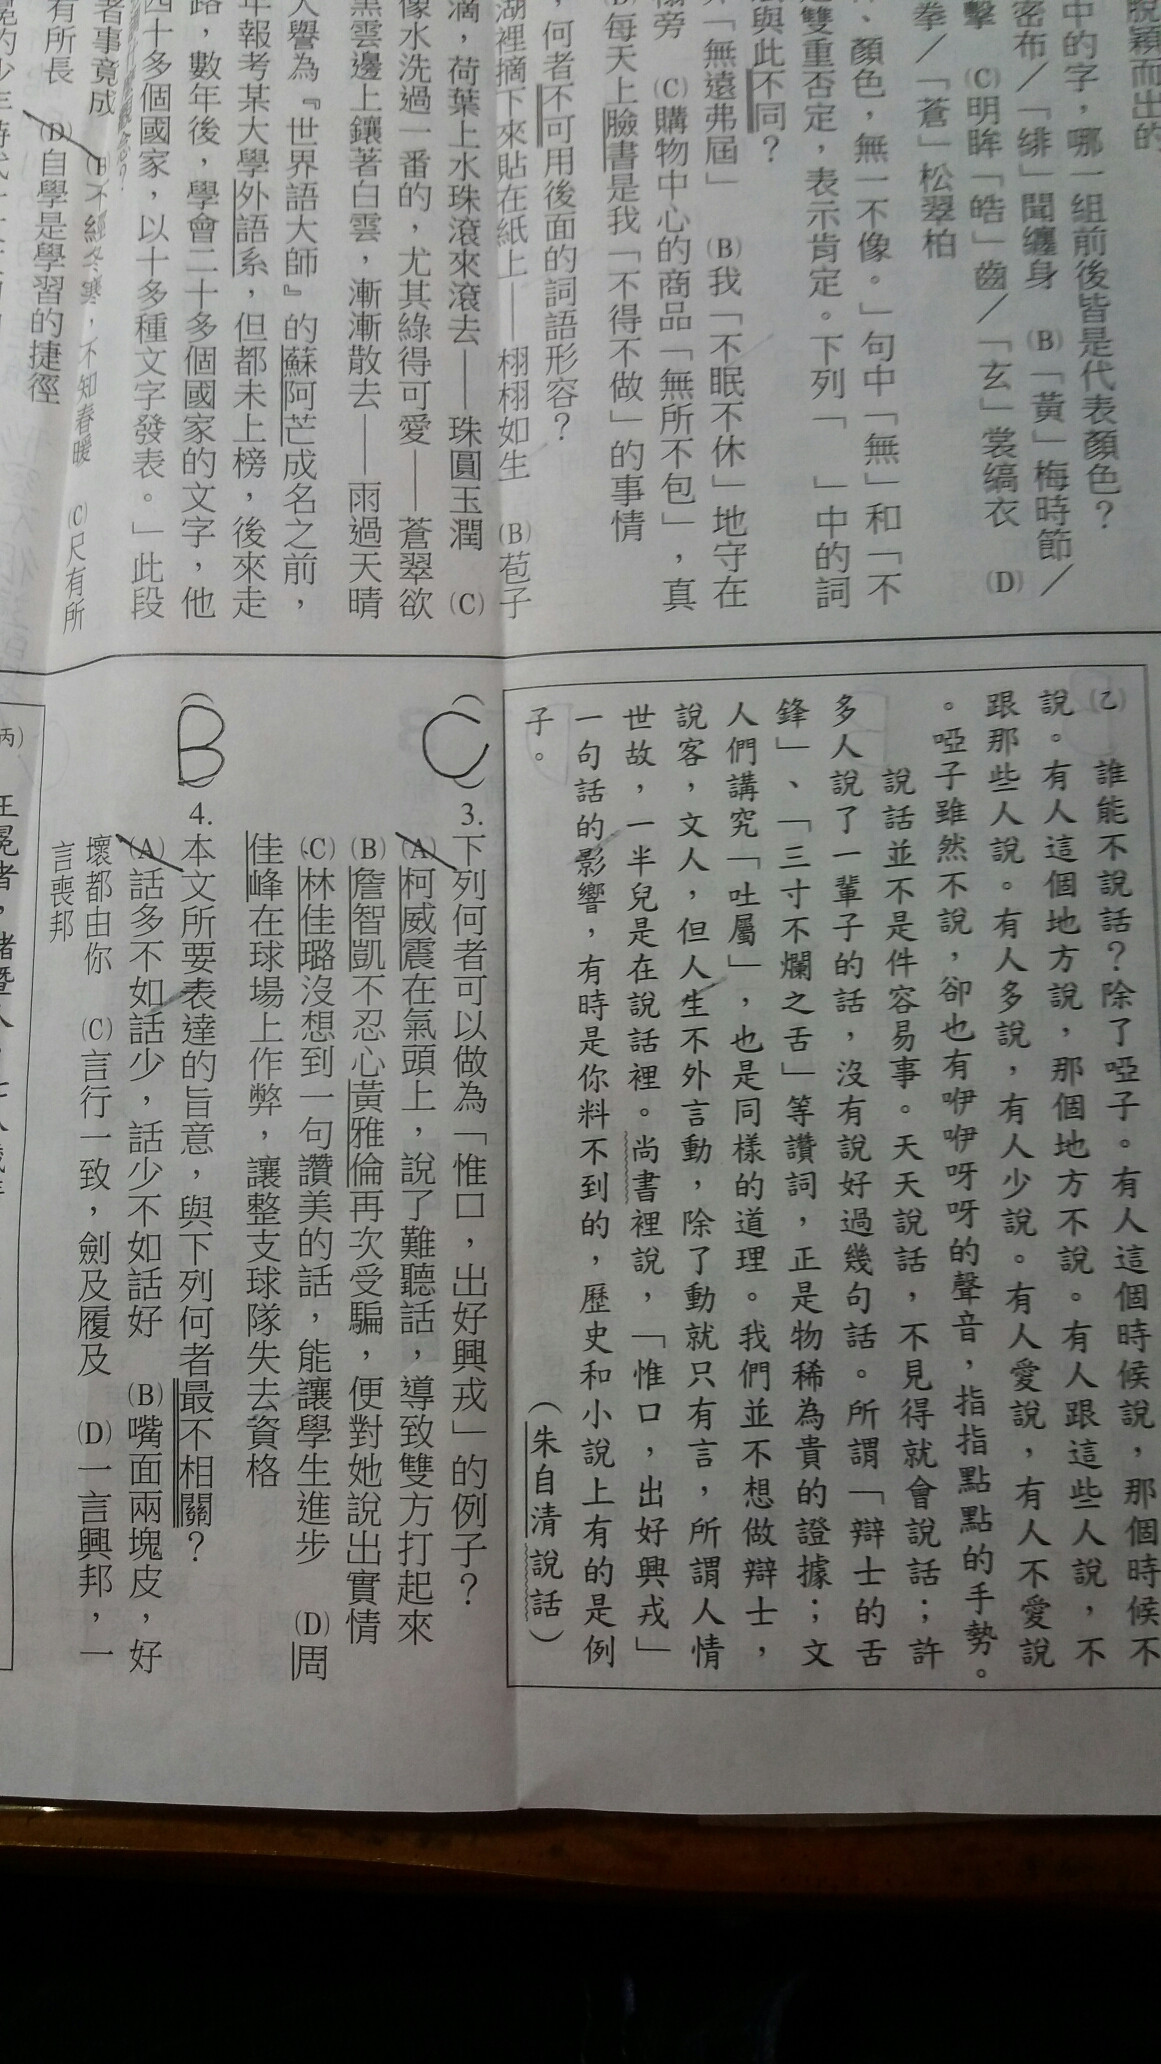 脫穎而出的
中的字，哪一組前後皆是代表顏色？
密布／「緋」聞纏身　(B)「黃」梅時節／
擊　(C)明眸「皓」齒／「玄」裳縞衣　(D)
拳／「蒼」松翠柏
、顏色，無一不像。」句中「無」和「不
雙重否定，表示肯定。下列「　」中的詞
與此不同？
「無遠弗屆」　(B)我「不眠不休」地守在
旁　(C)購物中心的商品「無所不包」，真
每天上臉書是我「不得不做」的事情
，何者不可用後面的詞語形容？
湖裡摘下來貼在紙上——栩栩如生　(B)苞子
滴，荷葉上水珠滾來滾去——珠圓玉潤　(C)
像水洗過一番的，尤其綠得可愛——蒼翠欲
黑雲邊上鑲著白雲，漸漸散去——雨過天晴
人譽為『世界語大師』的蘇阿芒成名之前，
年報考某大學外語系，但都未上榜，後來走
路，數年後，學會二十多個國家的文字，他
四十多個國家，以十多種文字發表。」此段
者事竟成　(B)不經冬寒，不知春暖　(C)尺有所
有所長　(D)自學是學習的捷徑
(乙)　誰能不說話？除了啞子。有人這個時候說，那個時候不
說。有人這個地方說，那個地方不說。有人跟這些人說，不
跟那些人說。有人多說，有人少說。有人愛說，有人不愛說
。啞子雖然不說，卻也有咿咿呀呀的聲音，指指點點的手勢。
說話並不是件容易事。天天說話，不見得就會說話；許
多人說了一輩子的話，沒有說好過幾句話。所謂「辯士的舌
鋒」、「三寸不爛之舌」等讚詞，正是物稀為貴的證據；文
人們講究「吐屬」，也是同樣的道理。我們並不想做辯士，
說客，文人，但人生不外言動，除了動就只有言，所謂人情
世故，一半兒是在說話裡。尚書裡說，「惟口，出好興戎」
一句話的影響，有時是你料不到的，歷史和小說上有的是例
子。　（朱自清說話）
(C)3.下列何者可以做為「惟口，出好興戎」的例子？
(A)柯威震在氣頭上，說了難聽話，導致雙方打起來
(B)詹智凱不忍心黃雅倫再次受騙，便對她說出實情
(C)林佳璐沒想到一句讚美的話，能讓學生進步　(D)周
佳峰在球場上作弊，讓整支球隊失去資格
(B)4.本文所要表達的旨意，與下列何者最不相關？
(A)話多不如話少，話少不如話好　(B)嘴面兩塊皮，好
壞都由你　(C)言行一致，劍及履及　(D)一言興邦，一
言喪邦
(丙)